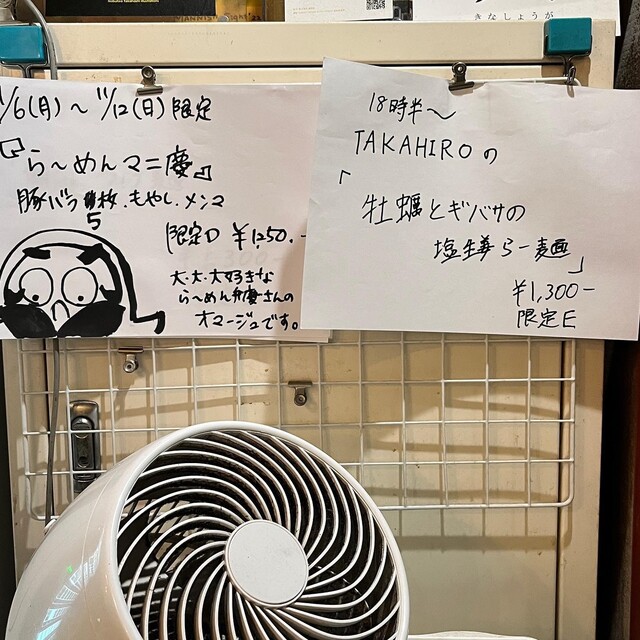 /6(月)～11/12(日)限定
『ら～めんマニ慶』
豚バラ 枚.もやし.メンマ
5
限定D ¥1250.-
大・大・大好きな
ら～めん弁慶さんの
オマージュです。
18時半～
TAKAHIROの
「
牡蠣とギバサの
塩生姜らー麺
」
¥1,300-
限定E
きなしょうが